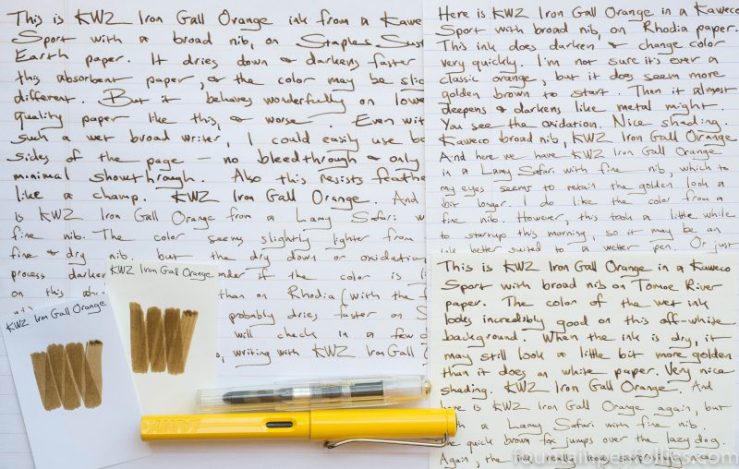 This is KWZ Iron Gall Orange ink from a Kawe
Sport with a broad nib, on Staples Sust
Earth paper. It dries down & darkens faster
this absorbent paper, & the color may be slig
different. But it behaves wonderfully on lowe
quality paper like this, & worse. Even wit
such a wet broad writer, I could easily use bo
sides of the page — no bleedthrough & only
minimal showthrough. Also this resists feathe
like a champ. KWZ Iron Gall Orange. And
is KWZ Iron Gall Orange from a Lamy Safari w
fine nib. The color seems slightly lighter from
fine & dry nib, but the dry down or oxidation
process darken
on this abs
KWZ Iron Gall Orange
nder if the color is
than on Rhodia (with the f
probably dries faster on S
will check in a few
, writing with KWZ Iron Gall
KWZ Iron Gall Orange
Here is KWZ Iron Gall Orange in a Kaweco
Sport with broad nib, on Rhodia paper.
This ink does darken & change color
very quickly. I'm not sure it's ever a
classic orange, but it does seem more
golden brown to start. Then it almost
deepens & darkens like metal might.
You see the oxidation. Nice shading.
Kaweco broad nib, KWZ Iron Gall Orange
And here we have KWZ Iron Gall Orange
in a Lamy Safari with fine nib, which to
my eyes seems to retain the golden look a
bit longer. I do like the color from a
fine nib. However, this took a little while
to startup this morning, so it may be an
ink better suited to a wetter pen. Or just
This is KWZ Iron Gall Orange in a Kaweco
Sport with broad nib on Tomoe River
paper. The color of the wet ink
looks incredibly good on this off-white
background. When the ink is dry, it
may still look a little bit more golden
than it does on white paper. Very nice
shading. KWZ Iron Gall Orange. And
is KWZ Iron Gall Orange again, but
a Lamy Safari with fine nib.
the quick brown fox jumps over the lazy dog.
Again, the ink really
LAMY